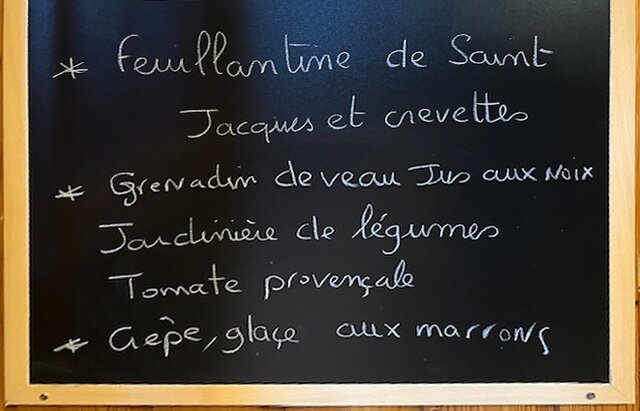 * Feuillantine de Saint
Jacques et crevettes
* Grenadin de veau Jus aux noix
Jardinière de légumes
Tomate provençale
* Crêpe, glaçe aux marrons